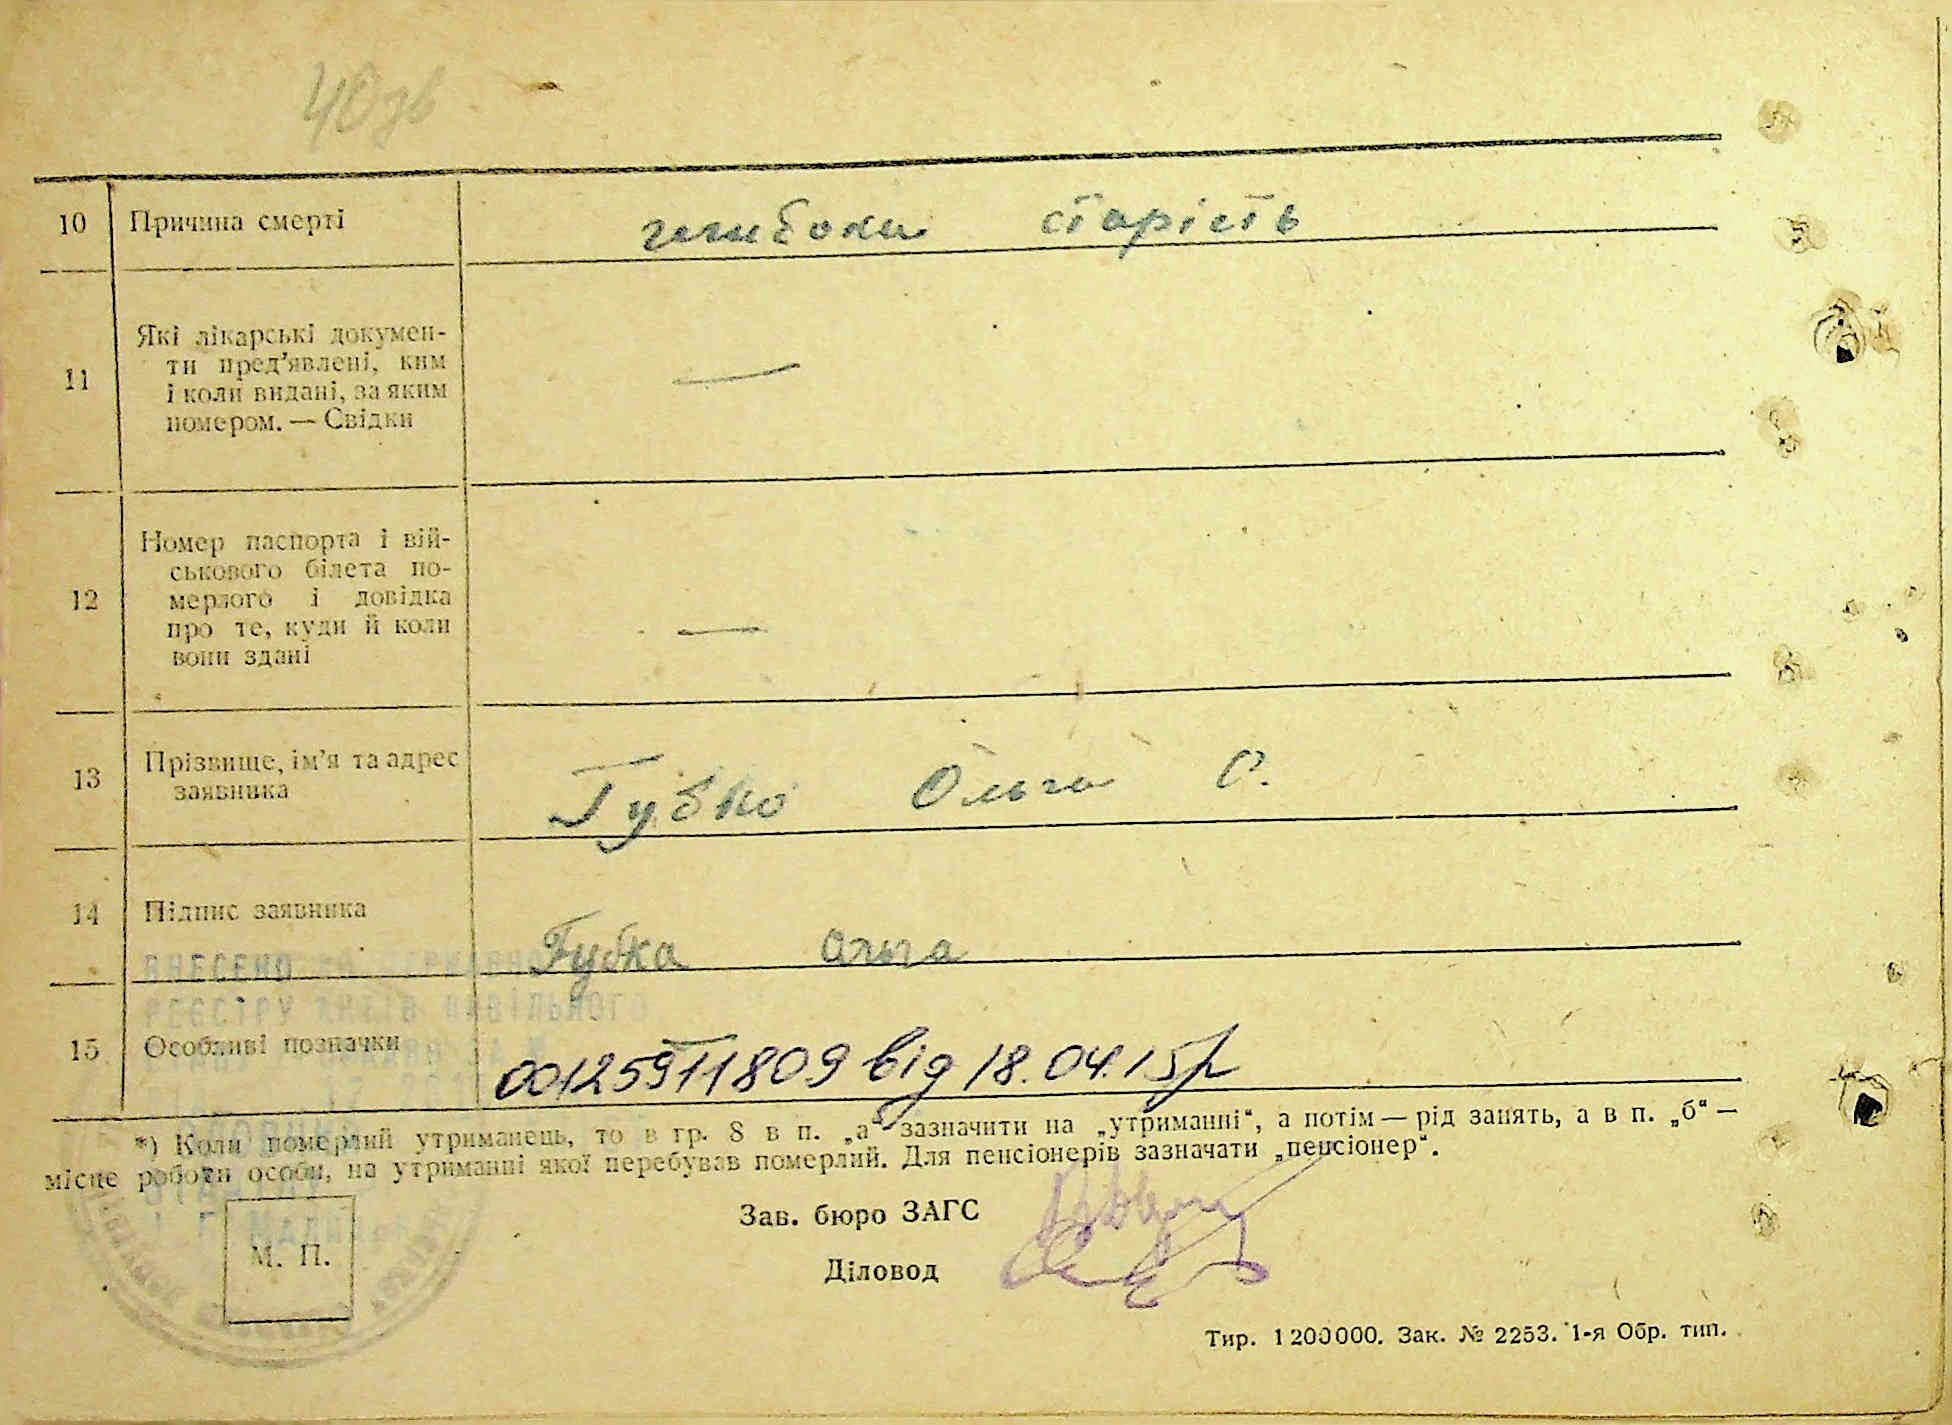 40 зв
10 Причина смерті глибока старість
11 Які лікарські докумен-
ти пред'явлені, ким
і коли видані, за яким
номером. — Свідки —
12 Номер паспорта і вій-
ськового білета по-
мерлого і довідка
про те, куди й коли
вони здані —
13 Прізвище, ім'я та адрес
заявника Губко Ольга С.
14 Підпис заявника Губка Ольга
ВНЕСЕНО ДО ДЕРЖАВНОГО
РЕЄСТРУ АКТІВ ЦИВІЛЬНОГО
15 Особливі позначки 00125911809 від 18.04.15р
*) Коли померлий утриманець, то в гр. 8 в п. „а“ зазначити на „утриманні“, а потім — рід занять, а в п. „б“ —
місце роботи особи, на утриманні якої перебував померлий. Для пенсіонерів зазначати „пенсіонер“.
Зав. бюро ЗАГС
М. П.
Діловод
Тир. 1200000. Зак. № 2253. 1-я Обр. тип.